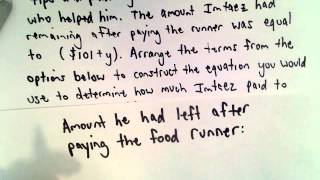 who helped him. The amount Imteez had
remaining after paying the runner was equal
to ($101+y). Arrange the terms from the
options below to construct the equation you would
use to determine how much Imteez paid to
Amount he had left after
paying the food runner: